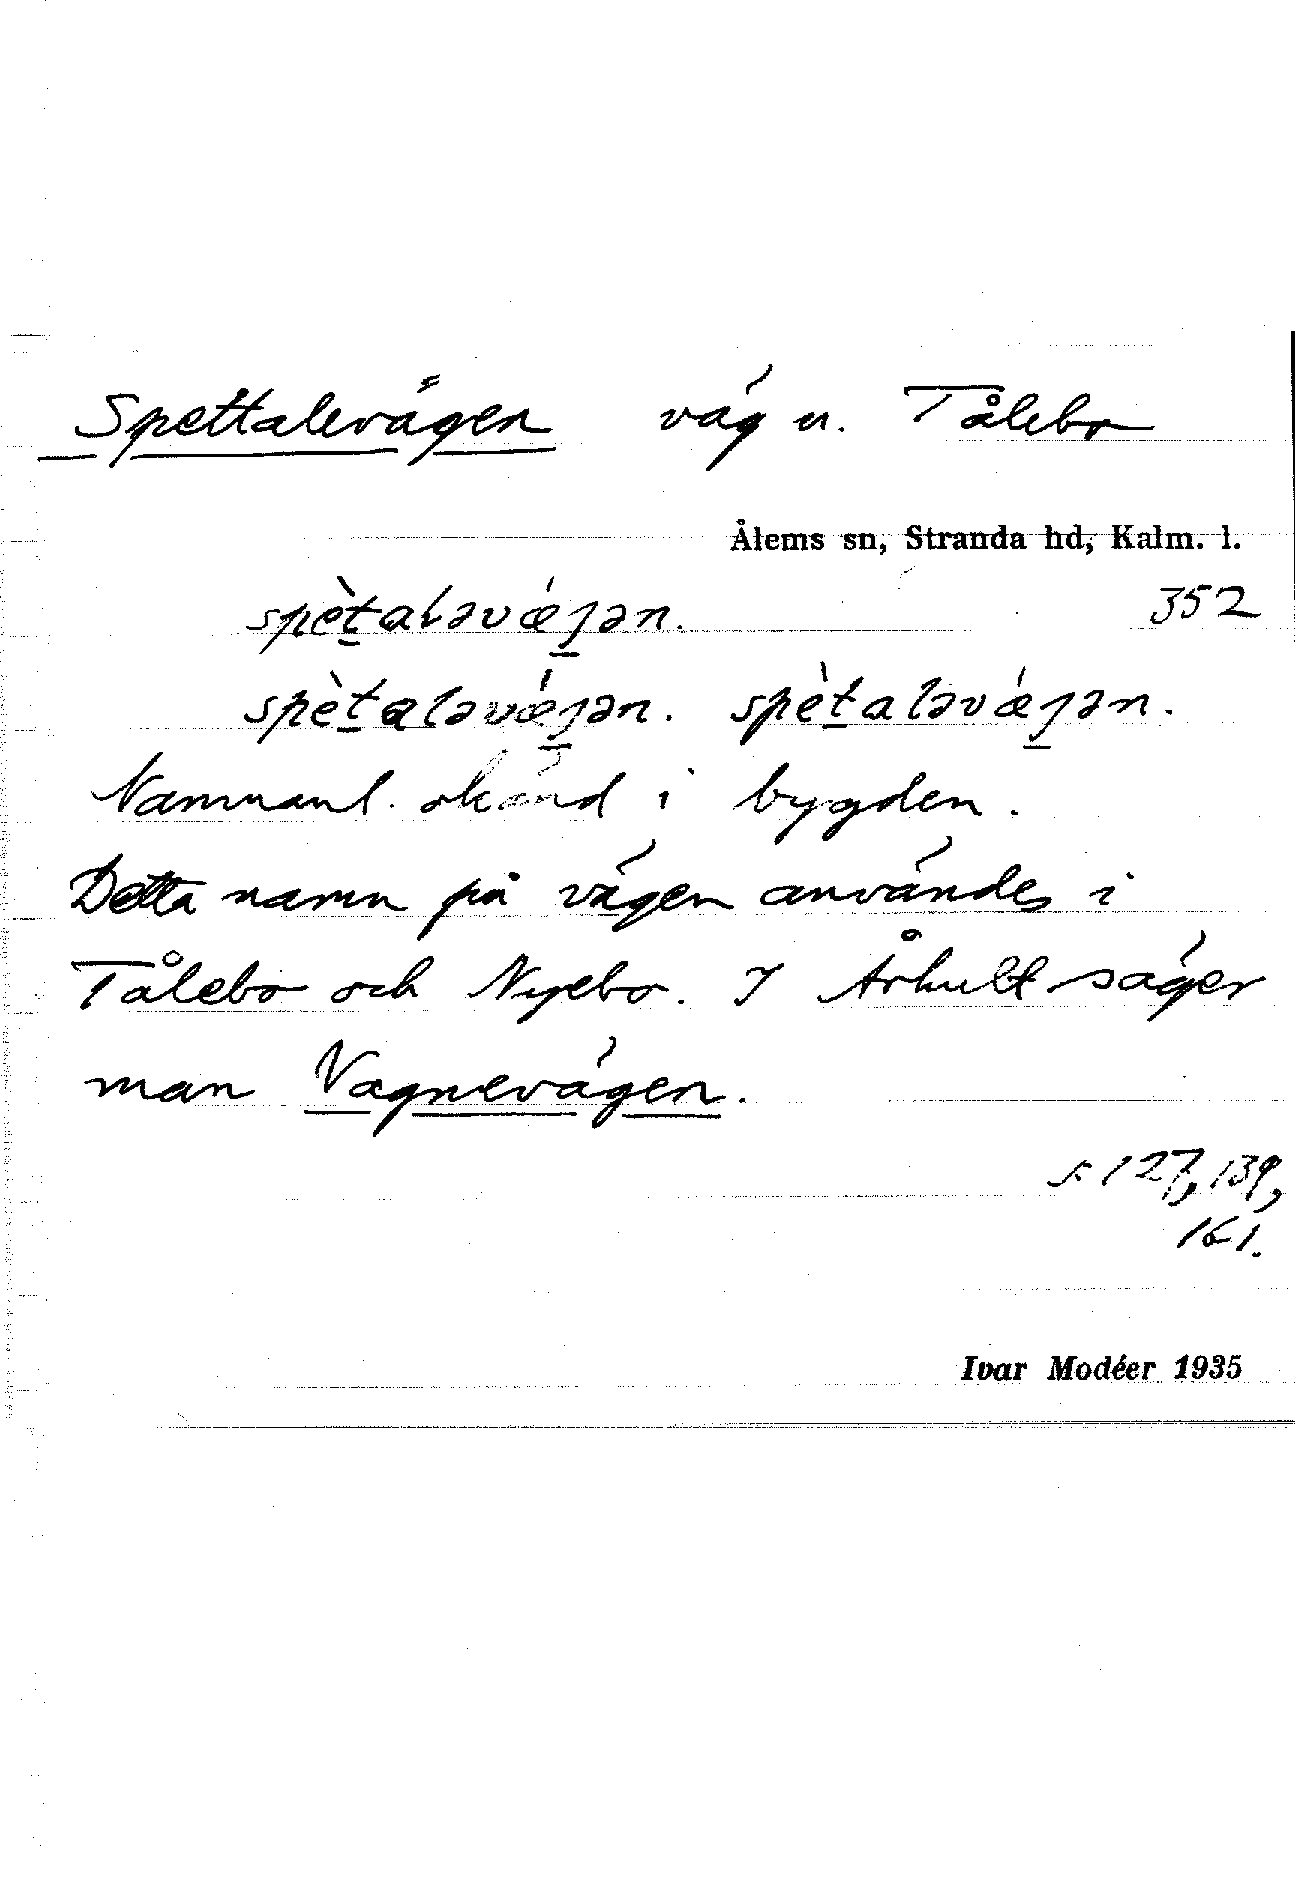 Spettalevägen väg n. Tålebo
Ålems sn, Stranda hd, Kalm. l.
spètaləvǽȷən. 352
spètaləvǽȷən. spètaləvǽȷən.
Namnanl. okänd i bygden.
Detta namn på vägen användes i
Tålebo och Nyebo. I Århult säger
man Vagnevägen.
s. 127, 139,
161.
Ivar Modéer 1935